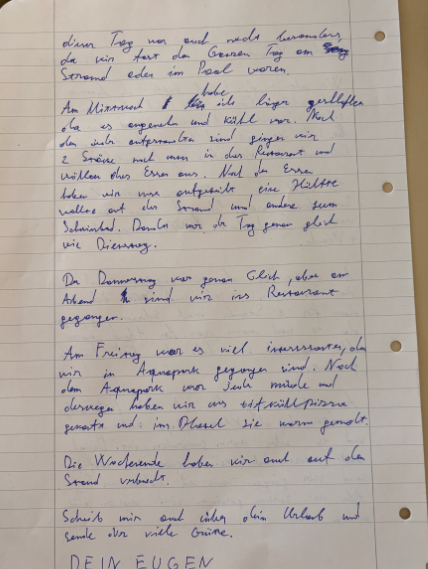 dieser Tag war auch nicht besonders,
da wir fast den Ganzen Tag am
Strand oder im Pool waren.
Am Mittwoch habe ich länger geschlafen
da es angenehm und kühl war. Nach
dem
sind gingen wir
2 nach in das Restaurant und
das Essen aus. Nach den Essen
haben wir uns aufgeteilt eine Hälfte
wollte auf den Strand und andere zum
Schwimbad. war der Tag genau gleich
wie Dienstag.
Da Donnerstag war genau Gleich, aber am
Abend sind wir ins Restaurant
gegangen.
Am Freitag war es viel interessanter, da
wir in Aquapark gegangen sind. Nach
dem Aquapark war müde und
deswegen haben wir uns
und im sie warm gemacht.
Die Wochenende haben wir auch auf den
Strand verbracht.
Schreib mir auch über dein Urlaub und
sende dir viele Grüße.
DEIN EUGEN